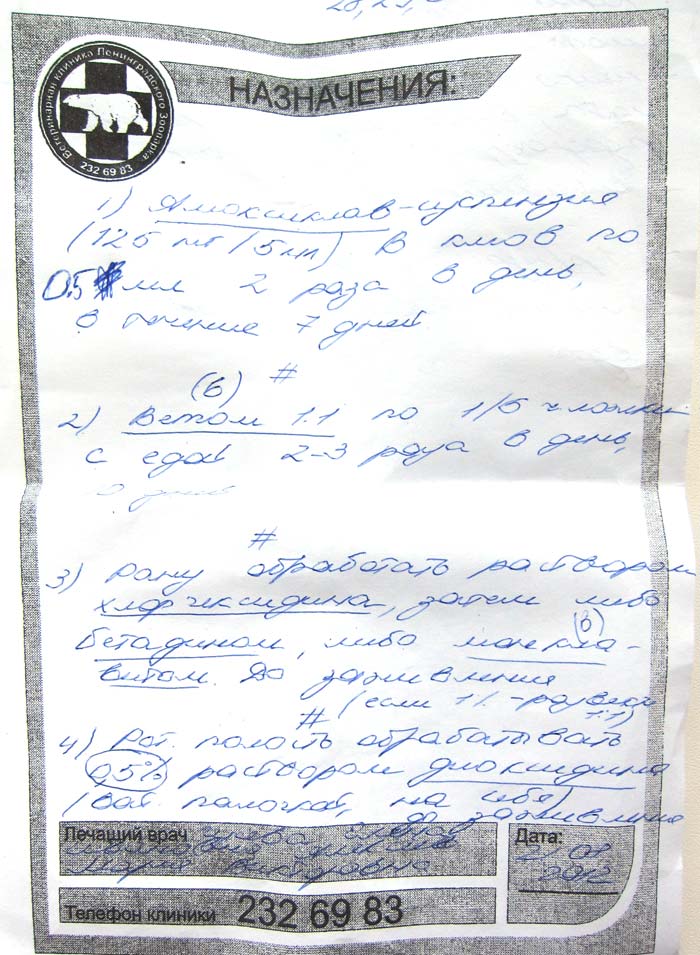 28,29,
Ветеринарная клиника Ленинградского Зоопарка
232 69 83
НАЗНАЧЕНИЯ:
1) Амоксиклав-суспензия
(125 мг/5мл) В клюв по
0.5 мл 2 раза в день,
в течение 7 дней.
(в) #
2) Ветом 1.1 по 1/5 ч. ложки
с едой 2-3 раза в день,
#
3) Рану обработать раствором
хлоргексидина, затем либо
(в)
бетадином, либо монкла-
витом. До заживления
(если 1% - развести
# 1:1)
4) Рот. полость обрабатывать
0,5% раствором диоксидина
(ват. палочкой, на себя)
до заживления
Лечащий врач
Мария Викторовна
Дата:
2012
Телефон клиники 232 69 83